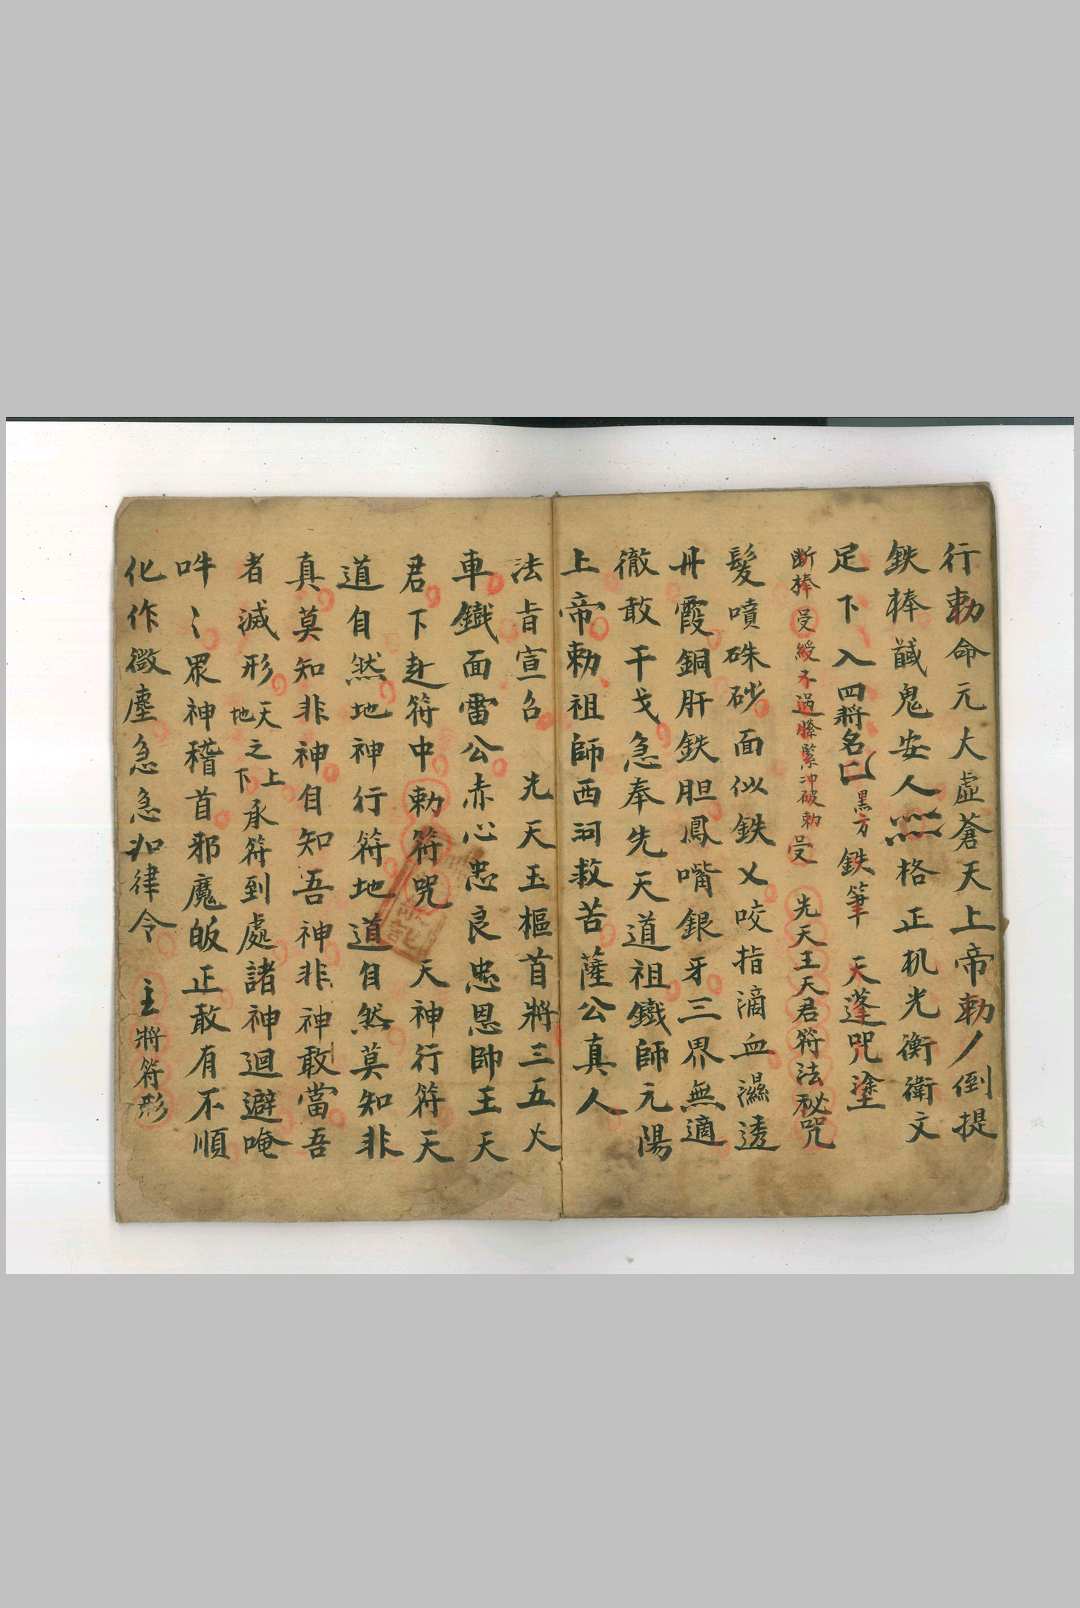 行勅命元大虛蒼天上帝勅丿倒提
鉄棒馘鬼安人 格正机光衡衛文
足下入四將名 黑方 鉄筆 天蓬咒塗
断棒 受綬不過 緊冲破勅 受 先天王天君符法秘咒
髮噴硃砂面似鉄乂咬指滴血濕透
丹霞銅肝鉄胆鳳嘴銀牙三界無適
徹敢干戈急奉先天道祖鐵師元陽
上帝勅祖師西河救苦薩公真人
法旨宣召 先天玉樞首將三五火
車鐵面雷公赤心忠良忠恩帥王天
君下赴符中 勅符咒 天神行符天
道自然地神行符地道自然莫知非
真莫知非神自知吾神非神敢當吾
者滅形天地之上下承符到處諸神迴避唵
吽〻眾神稽首邪魔皈正敢有不順
化作微塵急急如律令 主將符形